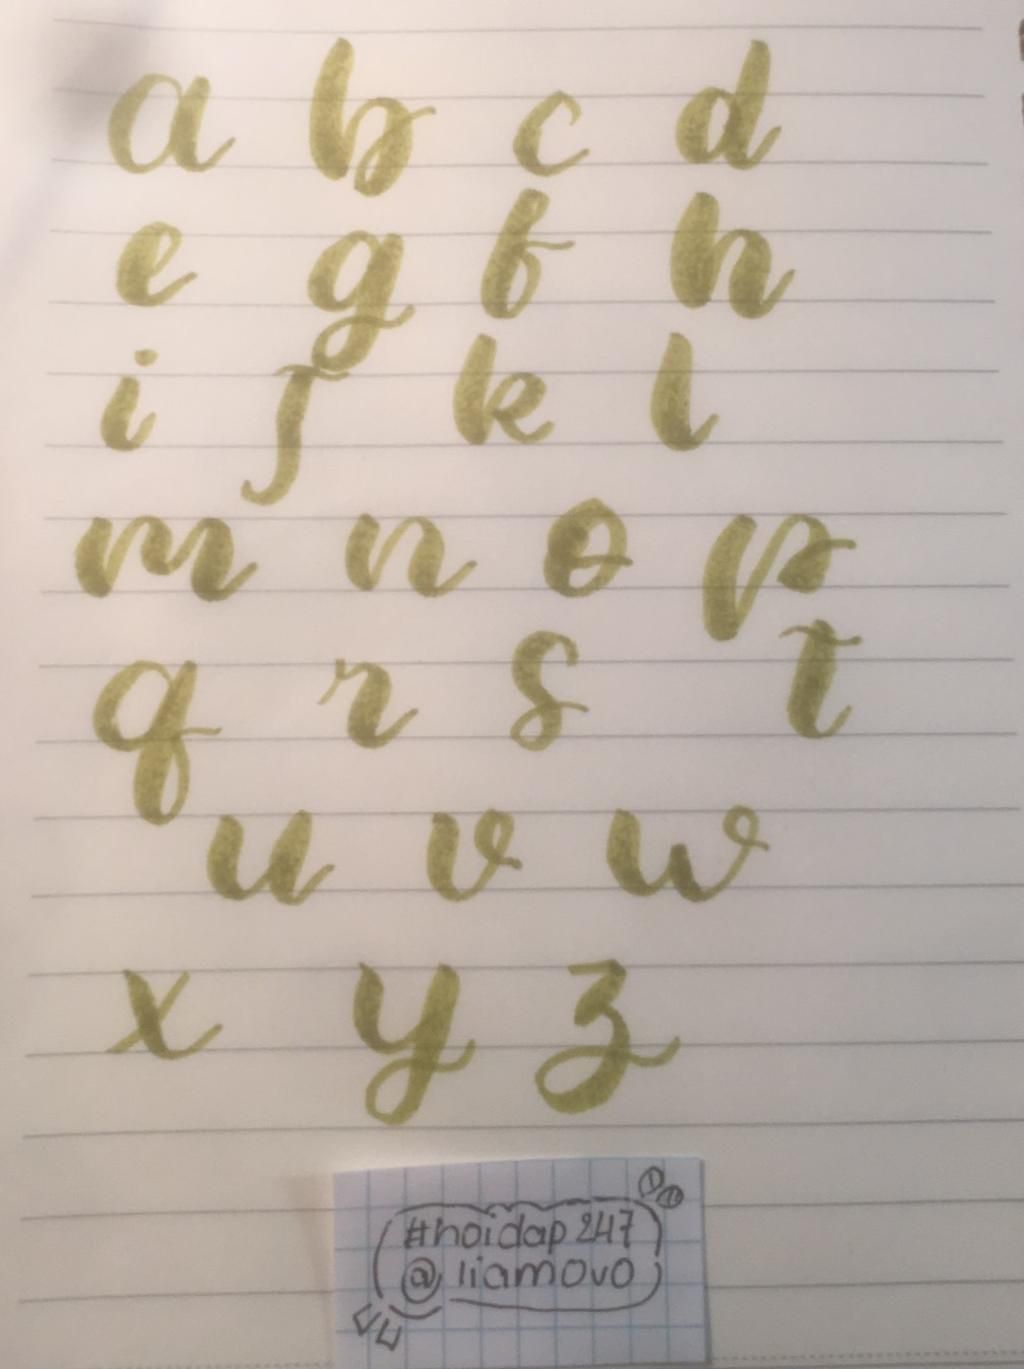 a b c d
e g f h
i j k l
m n o p
q r s t
u v w
x y z
#hoidap247
@liamovo